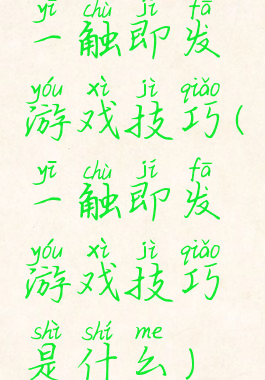 yī chù jí fā
一触即发
yóu xì jì qiǎo
游戏技巧(
yī chù jí fā
一触即发
yóu xì jì qiǎo
游戏技巧
shì shí me
是什么)